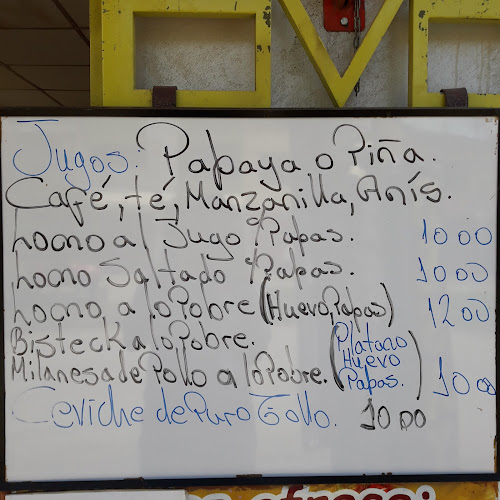 Jugos: Papaya o Piña.
Café, té, Manzanilla, Anís.
Lomo al Jugo Papas. 10 00
Lomo Saltado Papas. 10 00
Lomo, a lo Pobre (Huevo, Papas) 12 00
Bisteck a lo Pobre.
Milanesa de Pollo a lo Pobre. (Platano Huevo Papas.) 10 00
Ceviche de Puro Tollo. 10 00